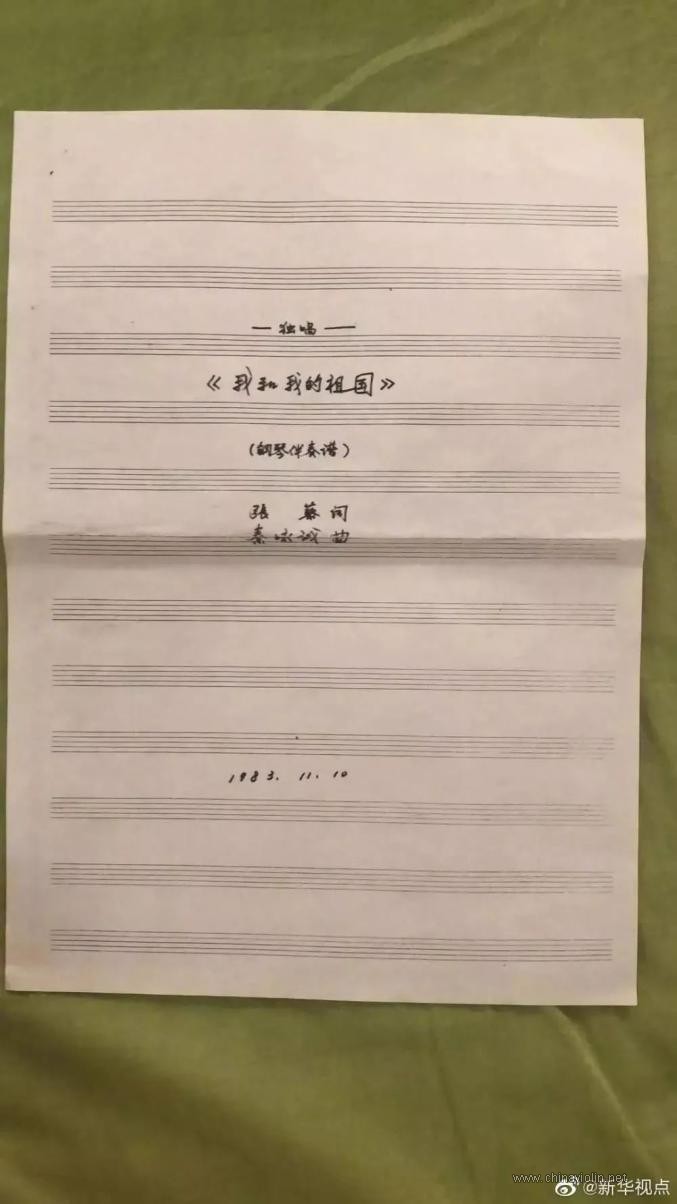 — 独唱 —
《我和我的祖国》
(钢琴伴奏谱)
张 藜 词
秦咏诚 曲
1983. 11. 10
www.chinaviolin.net
@新华视点